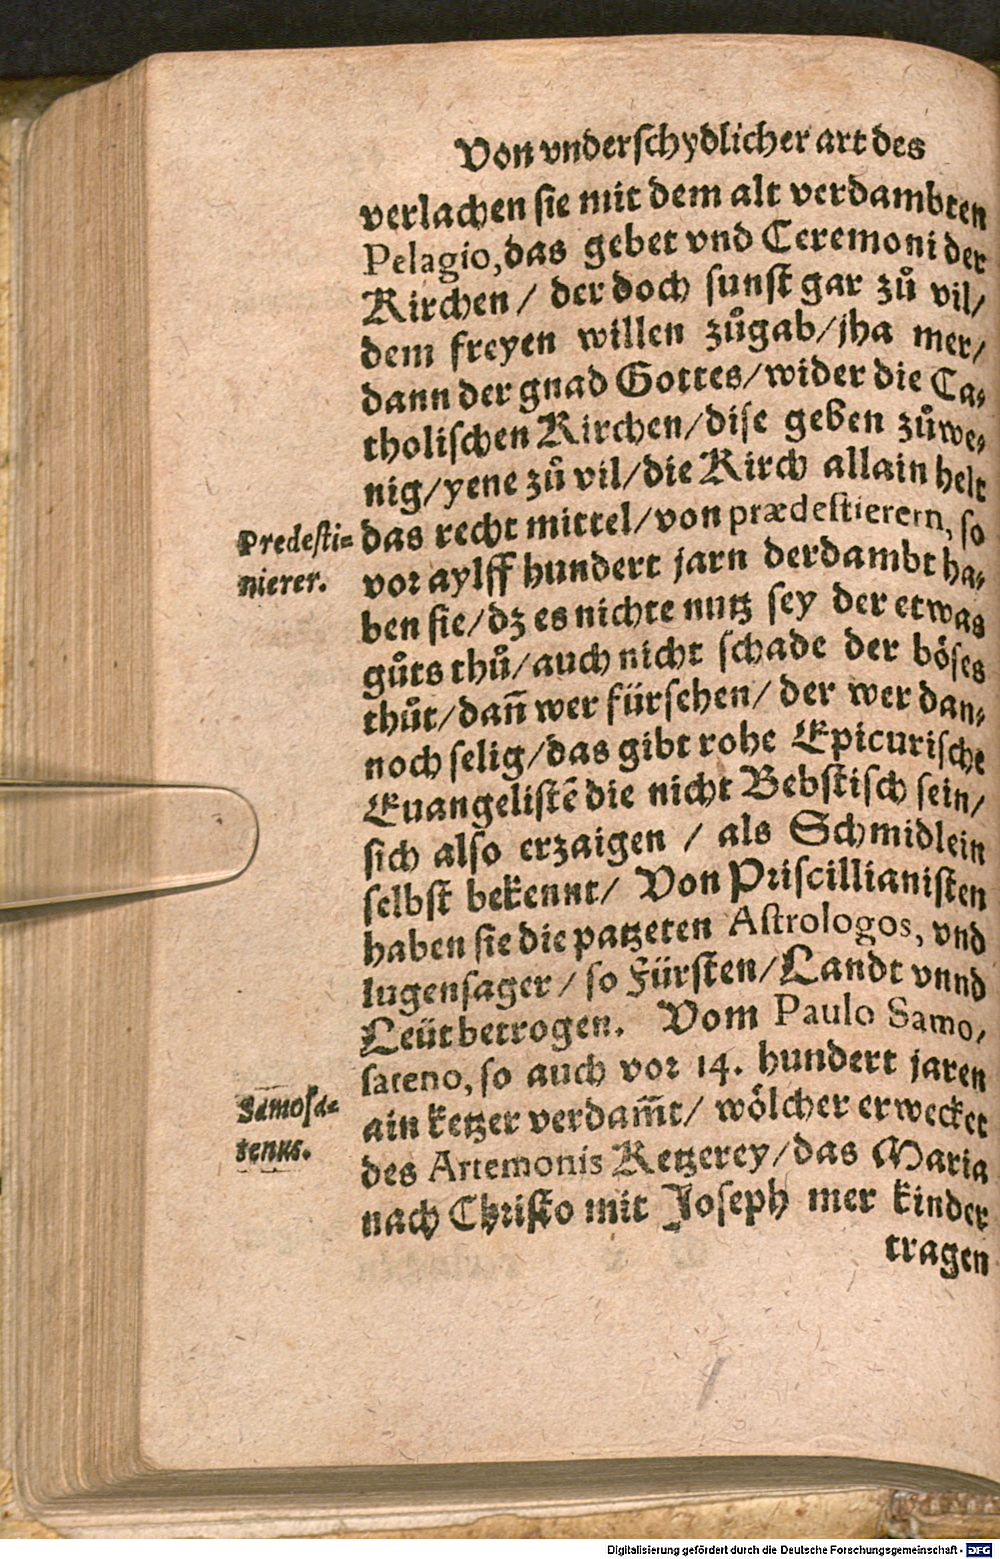 Von vnderschydlicher art des
verlachen sie mit dem alt verdambten
Pelagio, das gebet vnd Ceremoni der
Kirchen / der doch sunst gar zů vil/
dem freyen willen zůgab/jha mer/
dann der gnad Gottes/wider die Ca-
tholischen Kirchen/dise geben zůwe-
nig/yene zů vil/die Kirch allain helt
Predesti-
nierer.
das recht mittel/von prædestierern, so
vor aylff hundert jarn derdambt ha-
ben sie/dz es nichte nutz sey der etwas
gůts thů/auch nicht schade der böses
thůt/dañ wer fürsehen/ der wer dan-
noch selig/das gibt rohe Epicurische
Euangelistẽ die nicht Bebstisch sein/
sich also erzaigen / als Schmidlein
selbst bekennt/ Von Priscillianisten
haben sie die patzeten Astrologos, vnd
lugensager / so Fürsten/Landt vnnd
Leüt betrogen. Vom Paulo Samo-
sateno, so auch vor 14. hundert jaren
Samosa-
tenus.
ain ketzer verdam̃t/ wölcher erwecket
des Artemonis Ketzerey/das Maria
nach Christo mit Joseph mer kinder
tragen
Digitalisierung gefördert durch die Deutsche Forschungsgemeinschaft - DFG